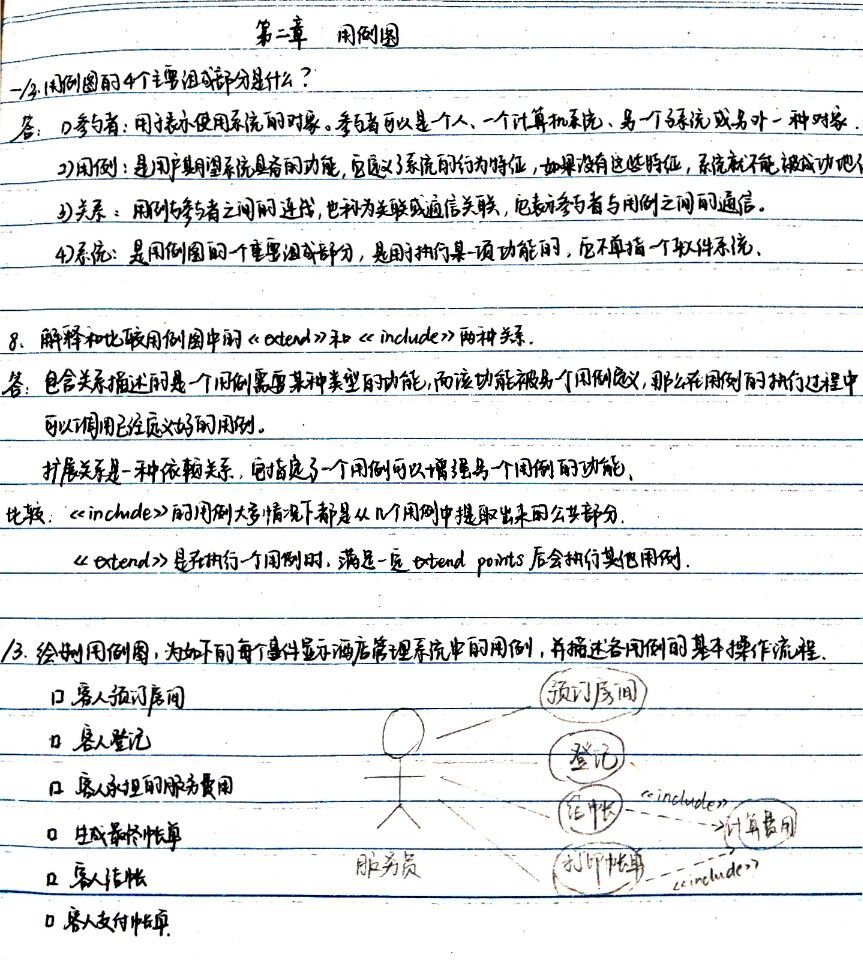 第二章 用例图
一/3.用例图的4个主要组成部分是什么？
答：1)参与者：用于表示使用系统的对象。参与者可以是个人、一个计算机系统、另一个子系统或另外一种对象.
2)用例：是用户期望系统具备的功能，它定义了系统的行为特征，如果没有这些特征，系统就不能被成功地使
3)关系：用例与参与者之间的连线，也称为关联或通信关联，它表示参与者与用例之间的通信。
4)系统：是用例图的一个重要组成部分，是用于执行某一项功能的，它不单指一个软件系统.
8. 解释和比较用例图中的<<extend>>和<<include>>两种关系.
答：包含关系描述的是一个用例需要某种类型的功能，而该功能被另一个用例定义，那么在用例的执行过程中
可以调用已经定义好的用例。
扩展关系是一种依赖关系，它指定了一个用例可以增强另一个用例的功能.
比较：<<include>>的用例大多情况下都是从几个用例中提取出来的公共部分.
<<extend>>是在执行一个用例时，满足一定extend points后会执行其他用例.
13. 绘制用例图，为如下的每个事件显示酒店管理系统中的用例，并描述各用例的基本操作流程.
□ 客人预订房间
预订房间
□ 客人登记
登记
□ 客人承担的服务费用
结帐
<<include>>
计算费用
□ 生成最终帐单
服务员
打印帐单
<<include>>
□ 客人结帐
□ 客人支付帐单